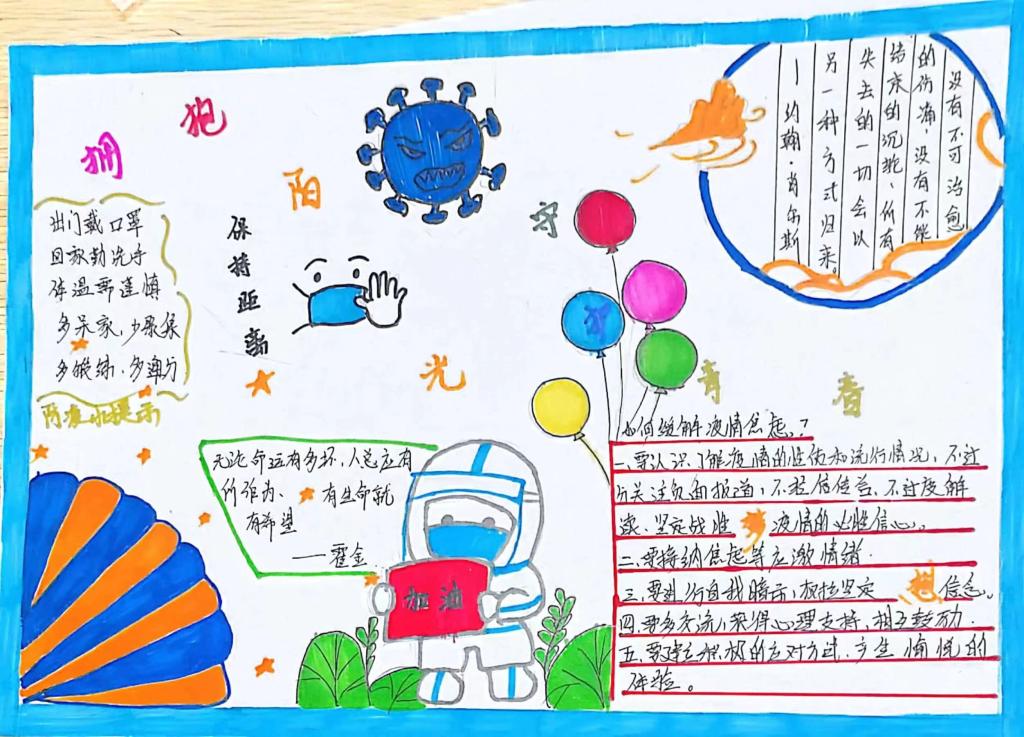 拥
抱
阳
光
守
护
青
春
梦
想
出门戴口罩
回家勤洗手
体温需谨慎
多呆家，少聚集
多锻炼，多通风
防疫小提示
保持距离
没有不可治愈
的伤痛，没有不能
结束的沉沦，所有
失去的一切会以
另一种方式归来。
—约翰·肖尔斯
无论命运有多坏，人总应有
所作为、有生命就
有希望
——霍金
加油
如何缓解疫情焦虑？
一、要认识、了解疫情的性质和流行情况，不过
分关注负面报道，不轻信传言、不过度解
读、坚定战胜疫情的必胜信心。
二、要接纳焦虑等应激情绪.
三、要进行自我暗示，积极坚定信念。
四、要多交流，获得心理支持，相互鼓励.
五、要建立积极的应对方式，产生愉悦的
体验。